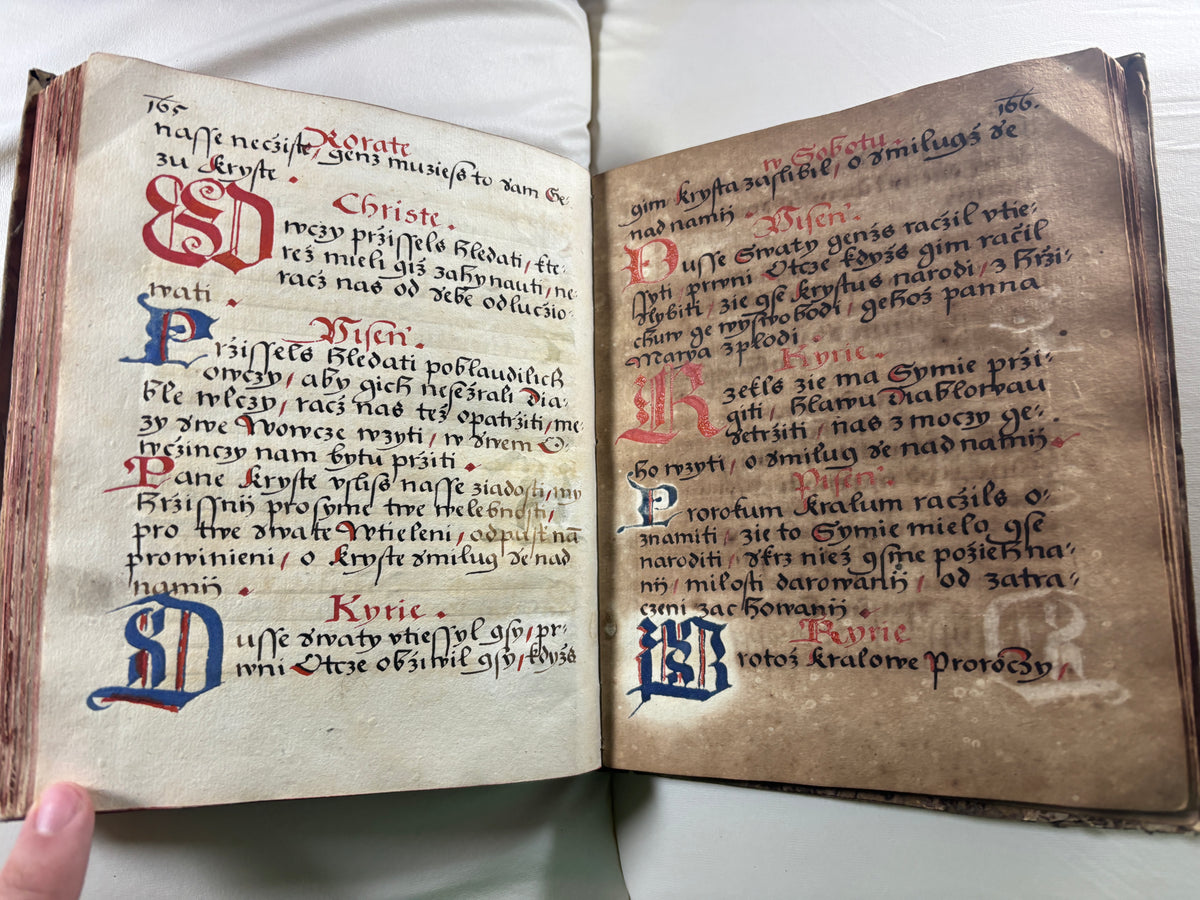 165
Rorate
nasse necziste, genz muziess to dam Ge-
zu Kryste.
Christe.
Owczy przissels hledati, kte-
rez mieli giz zahynauti, ne-
racz nas od sebe odluczio-
wati.
Pisen.
Przissels hledati poblaudilich
owczy, aby gich nesezrali dia-
ble wlczy, racz nas tez opatrziti, me-
zy swe Wowcze wzyti, w swem O-
wczinczy nam bytu prziti.
Pane Kryste uslis nasse ziadosti, my
hrzissnij prosyme twe welebnosti,
pro twe swate Wtieleni, odpust nā
prowinieni, o Kryste smilug se nad
namij.
Kyrie.
Dusse swaty vtiessyl gsy, pr-
wni Otcze obziwil gsy, kdyzs
166.
w Sobotu.
gim Krysta zaslibil, o smilugz se
nad namij.
Pisen.
Dusse Swaty genzs raczil vtie-
ssyti prwni Otcze kdyzs gim račil
slybiti, zie gse Krystus narodi, z hrzi-
chuw ge wyswobodi, gehoz panna
Marya zplodi.
Kyrie.
Rzekls zie ma Symie przi-
giti, hlawu diablowau
setrziti, nas z moczy ge-
ho wzyti, o smilug se nad namij.
Pisen.
Prorokum Kralum raczils o-
znamiti, zie to Symie mielo gse
naroditi, skrz niez gsme pozieh na-
nij, milosti darowanij, od zatra-
czeni zachowanij.
Kyrie
Protoz Kralowe Proroczy,